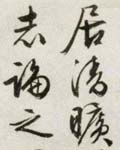 居清曠
志論之